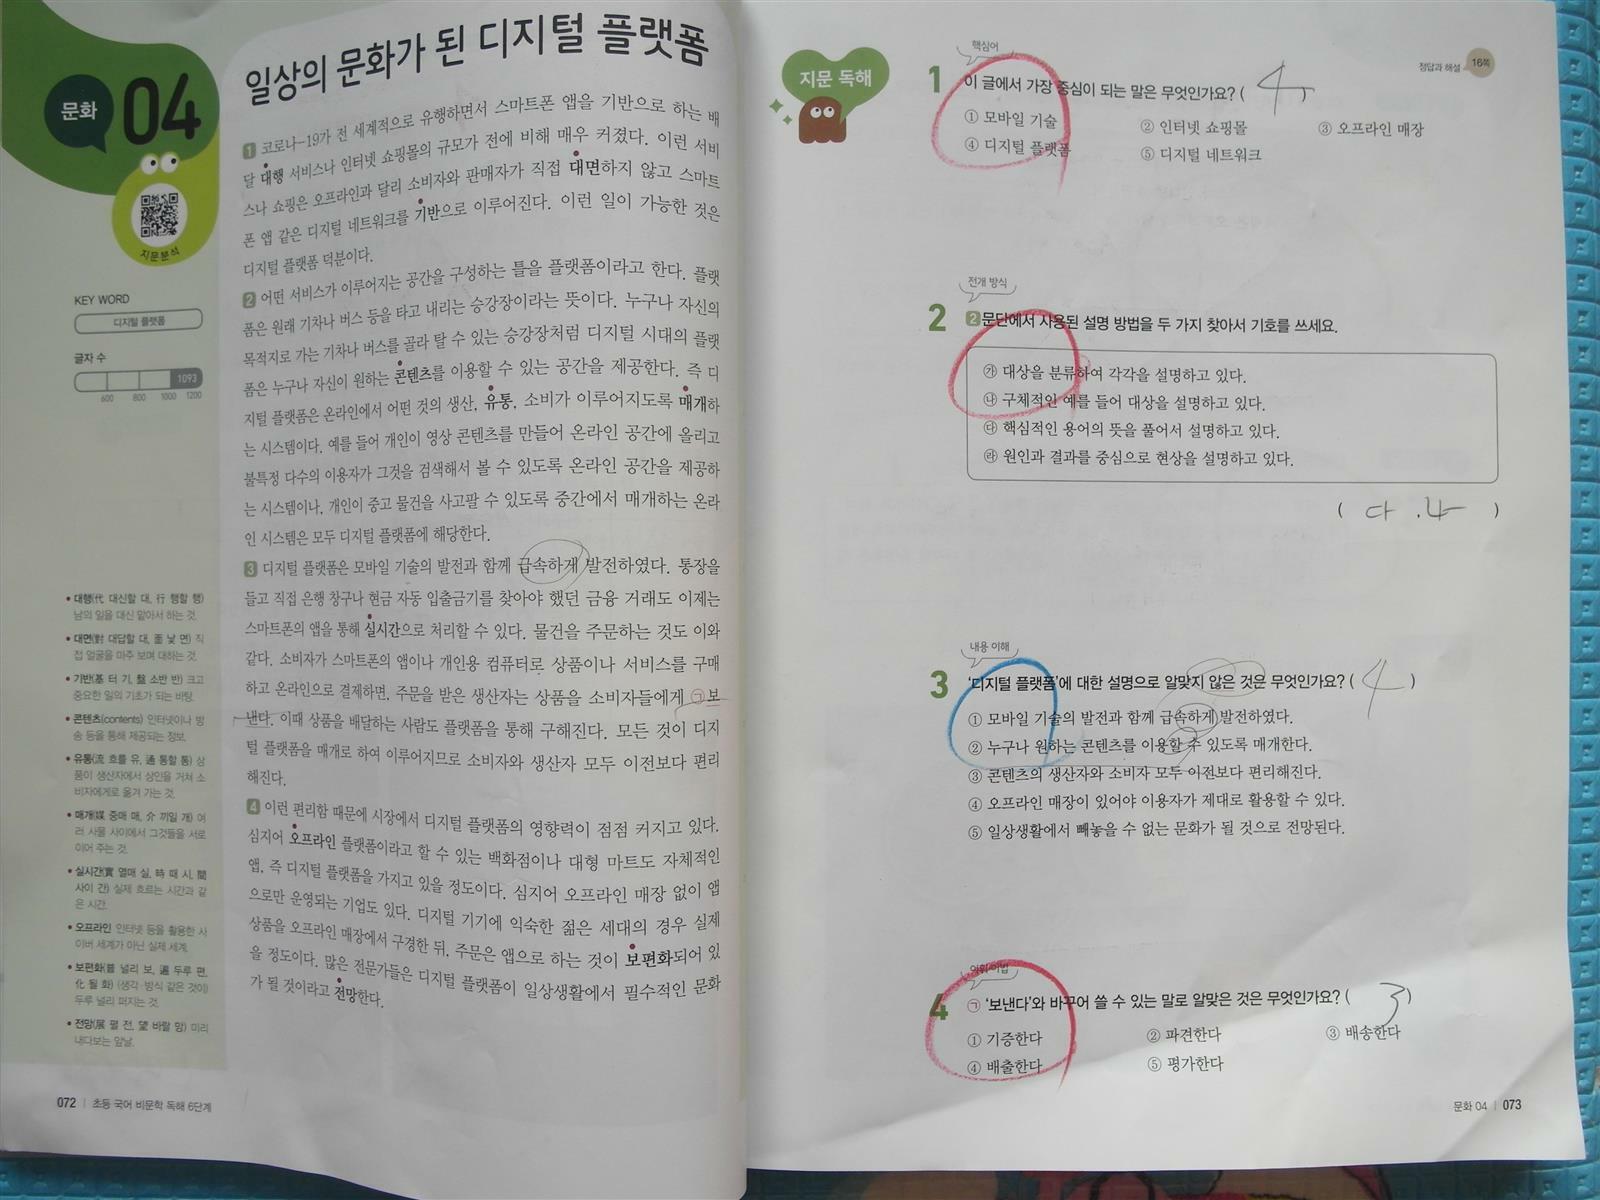 문화 04
지문분석
KEY WORD
디지털 플랫폼
글자 수
1093
600 800 1000 1200
• 대행(代 대신할 대, 行 행할 행)
남의 일을 대신 맡아서 하는 것.
• 대면(對 대답할 대, 面 낯 면) 직
접 얼굴을 마주 보며 대하는 것.
• 기반(基 터 기, 盤 소반 반) 크고
중요한 일의 기초가 되는 바탕.
• 콘텐츠(contents) 인터넷이나 방
송 등을 통해 제공되는 정보.
• 유통(流 흐를 유, 通 통할 통) 상
품이 생산자에서 상인을 거쳐 소
비자에게로 옮겨 가는 것.
• 매개(媒 중매 매, 介 끼일 개) 여
러 사물 사이에서 그것들을 서로
이어 주는 것.
• 실시간(實 열매 실, 時 때 시, 間
사이 간) 실제 흐르는 시간과 같
은 시간.
• 오프라인 인터넷 등을 활용한 사
이버 세계가 아닌 실제 세계.
• 보편화(普 널리 보, 遍 두루 편,
化 될 화) (생각·방식 같은 것이)
두루 널리 퍼지는 것.
• 전망(展 펼 전, 望 바랄 망) 미리
내다보는 앞날.
072 | 초등 국어 비문학 독해 6단계
일상의 문화가 된 디지털 플랫폼
1 코로나-19가 전 세계적으로 유행하면서 스마트폰 앱을 기반으로 하는 배
달 대행 서비스나 인터넷 쇼핑몰의 규모가 전에 비해 매우 커졌다. 이런 서비
스나 쇼핑은 오프라인과 달리 소비자와 판매자가 직접 대면하지 않고 스마트
폰 앱 같은 디지털 네트워크를 기반으로 이루어진다. 이런 일이 가능한 것은
디지털 플랫폼 덕분이다.
2 어떤 서비스가 이루어지는 공간을 구성하는 틀을 플랫폼이라고 한다. 플랫
폼은 원래 기차나 버스 등을 타고 내리는 승강장이라는 뜻이다. 누구나 자신의
목적지로 가는 기차나 버스를 골라 탈 수 있는 승강장처럼 디지털 시대의 플랫
폼은 누구나 자신이 원하는 콘텐츠를 이용할 수 있는 공간을 제공한다. 즉 디
지털 플랫폼은 온라인에서 어떤 것의 생산, 유통, 소비가 이루어지도록 매개하
는 시스템이다. 예를 들어 개인이 영상 콘텐츠를 만들어 온라인 공간에 올리고
불특정 다수의 이용자가 그것을 검색해서 볼 수 있도록 온라인 공간을 제공하
는 시스템이나, 개인이 중고 물건을 사고팔 수 있도록 중간에서 매개하는 온라
인 시스템은 모두 디지털 플랫폼에 해당한다.
3 디지털 플랫폼은 모바일 기술의 발전과 함께 급속하게 발전하였다. 통장을
들고 직접 은행 창구나 현금 자동 입출금기를 찾아야 했던 금융 거래도 이제는
스마트폰의 앱을 통해 실시간으로 처리할 수 있다. 물건을 주문하는 것도 이와
같다. 소비자가 스마트폰의 앱이나 개인용 컴퓨터로 상품이나 서비스를 구매
하고 온라인으로 결제하면, 주문을 받은 생산자는 상품을 소비자들에게 ㉠보
낸다. 이때 상품을 배달하는 사람도 플랫폼을 통해 구해진다. 모든 것이 디지
털 플랫폼을 매개로 하여 이루어지므로 소비자와 생산자 모두 이전보다 편리
해진다.
4 이런 편리함 때문에 시장에서 디지털 플랫폼의 영향력이 점점 커지고 있다.
심지어 오프라인 플랫폼이라고 할 수 있는 백화점이나 대형 마트도 자체적인
앱, 즉 디지털 플랫폼을 가지고 있을 정도이다. 심지어 오프라인 매장 없이 앱
으로만 운영되는 기업도 있다. 디지털 기기에 익숙한 젊은 세대의 경우 실제
상품을 오프라인 매장에서 구경한 뒤, 주문은 앱으로 하는 것이 보편화되어 있
을 정도이다. 많은 전문가들은 디지털 플랫폼이 일상생활에서 필수적인 문화
가 될 것이라고 전망한다.
지문 독해
정답과 해설 16쪽
핵심어
1 이 글에서 가장 중심이 되는 말은 무엇인가요? ( 4 )
① 모바일 기술 ② 인터넷 쇼핑몰 ③ 오프라인 매장
④ 디지털 플랫폼 ⑤ 디지털 네트워크
전개 방식
2 2문단에서 사용된 설명 방법을 두 가지 찾아서 기호를 쓰세요.
㉮ 대상을 분류하여 각각을 설명하고 있다.
㉯ 구체적인 예를 들어 대상을 설명하고 있다.
㉰ 핵심적인 용어의 뜻을 풀어서 설명하고 있다.
㉱ 원인과 결과를 중심으로 현상을 설명하고 있다.
( 다 , 나 )
내용 이해
3 ‘디지털 플랫폼’에 대한 설명으로 알맞지 않은 것은 무엇인가요? ( 4 )
① 모바일 기술의 발전과 함께 급속하게 발전하였다.
② 누구나 원하는 콘텐츠를 이용할 수 있도록 매개한다.
③ 콘텐츠의 생산자와 소비자 모두 이전보다 편리해진다.
④ 오프라인 매장이 있어야 이용자가 제대로 활용할 수 있다.
⑤ 일상생활에서 빼놓을 수 없는 문화가 될 것으로 전망된다.
어휘·어법
4 ㉠ ‘보낸다’와 바꾸어 쓸 수 있는 말로 알맞은 것은 무엇인가요? ( 3 )
① 기증한다 ② 파견한다 ③ 배송한다
④ 배출한다 ⑤ 평가한다
문화 04 | 073